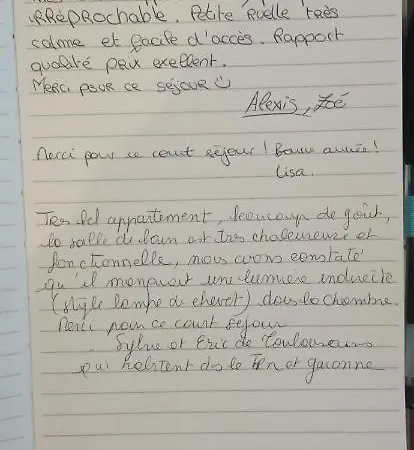 irréprochable. Petite Ruelle très
calme et facile d'accès. Rapport
qualité prix exellent.
Merci pour ce séjour
Alexis, Zoé
Merci pour ce court séjour ! Bonne année !
Lisa.
Très bel appartement, beaucoup de goût,
la salle de bain est très chaleureuse et
fonctionnelle, nous avons constaté
qu'il manquait une lumière indirecte
(style lampe de chevet) dans la chambre.
Merci pour ce court séjour
Sylvie et Eric de Toulousains
qui habitent ds le Trn et garonne